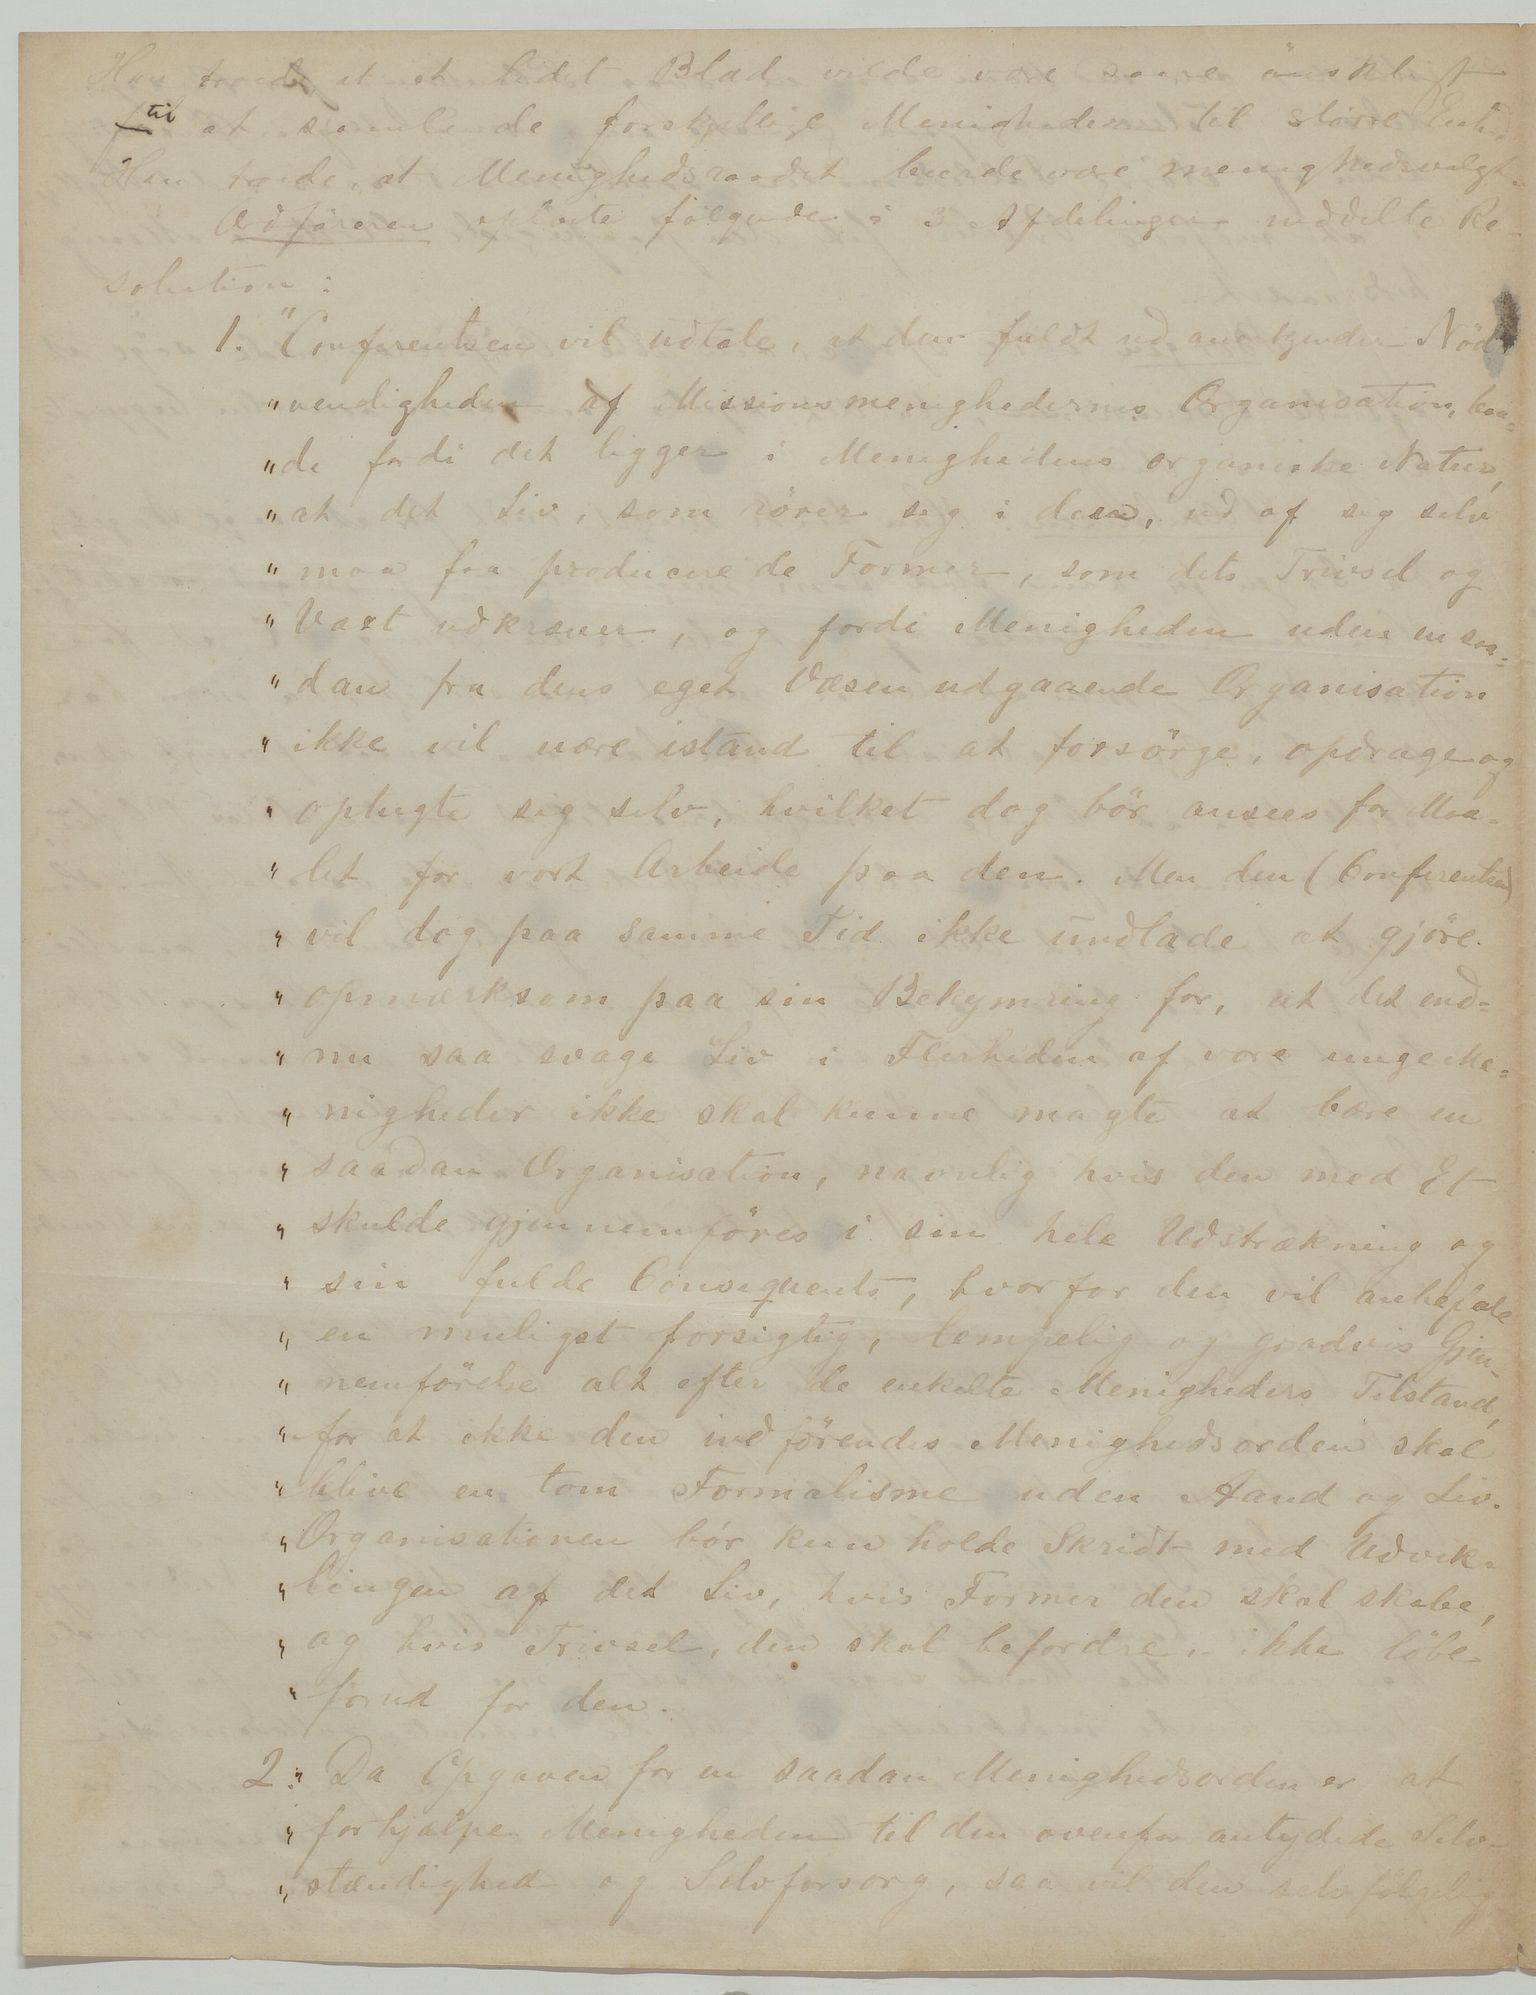 Han troede, at et lidet Blad vilde være saare önskeligt
til at samle de forskjellige Menigheder til större Enhed.
Han troede, at Menighedsraadet burde være menighedsvalgt.
Ordföreren oplæste fölgende i 3 Afdelinger inddelte Re-
solution:
1. "Conferentsen vil udtale, at den fuldt ud anerkjender Nöd-
" vendigheden af Missionsmenighedernes Organisation, baa=
" de fordi det ligger i Menighedens organiske Natur,
" at det Liv, som rörer sig i den, ud af sig selv
" maa faa producere de Former, som dets Trivsel og
" Væxt udkræver, og fordi Menigheden uden en saa=
" dan fra dens eget Væsen udgaaende Organisation
" ikke vil være istand til at forsörge, opdrage og
" optugte sig selv, hvilket dog bör ansees for Maa-
" let for vort Arbeide paa den. Men den (Conferentsen)
" vil dog paa samme Tid ikke undlade at gjöre
" opmærksom paa sin Bekymring for, at det end=
" nu saa svage Liv i Flerheden af vore unge Me=
" nigheder ikke skal kunne magte at bære en
" saadan Organisation, navnlig hvis den med Et
" skulde gjennemföres i sin hele Udstrækning og
" sin fulde Consequents, hvorfor den vil anbefale
" en muligst forsigtig, lempelig og gradvis Gjen-
" nemförelse alt efter de enkelte Menigheders Tilstand,
" for at ikke den indförendes Menighedsorden skal
" blive en tom Formalisme uden Aand og Liv.
" Organisationen bör kun holde Skridt med Udvik=
" lingen af det Liv, hvis Former den skal skabe,
" og hvis Trivsel, den skal befordre, ikke löbe
" forud for den.
2. " Da Opgaven for en saadan Menighedsorden er at
" forhjælpe Menigheden til den ovenfor antydede Selv-
" stændighed og Selvforsorg, saa vil den selvfölgelig